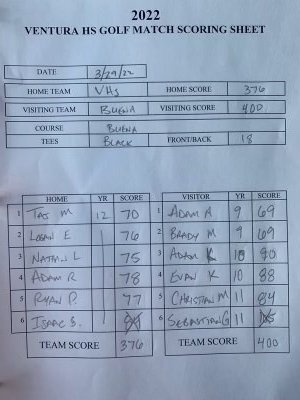 2022
VENTURA HS GOLF MATCH SCORING SHEET
DATE 3/29/22
HOME TEAM VHS HOME SCORE 376
VISITING TEAM BUENA VISITING SCORE 400
COURSE BUENA
TEES BLACK FRONT/BACK 18
HOME YR SCORE VISITOR YR SCORE
1 TAJ M 12 70 1 ADAM A 9 69
2 LOGAN E 76 2 BRADY M 9 69
3 NATHN L 75 3 ADAM K 10 90
4 ADAM R 78 4 EVAN K 10 88
5 RYAN P. 77 5 CHRISTIAN M 11 84
6 ISAAC B. 6 SEBASTIAN G 11
TEAM SCORE 376 TEAM SCORE 400